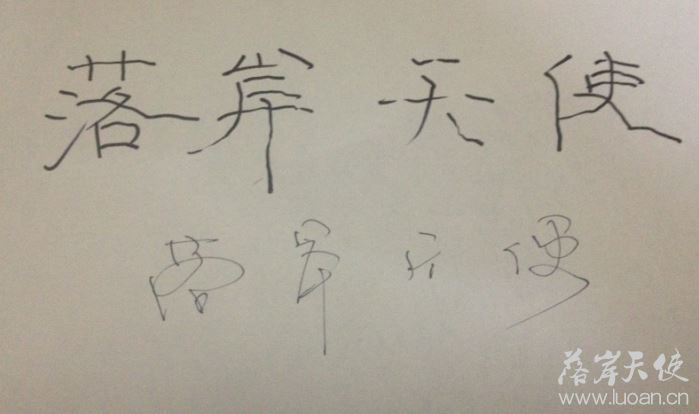 落岸天使
落岸天使
落岸天使
www.luoan.cn